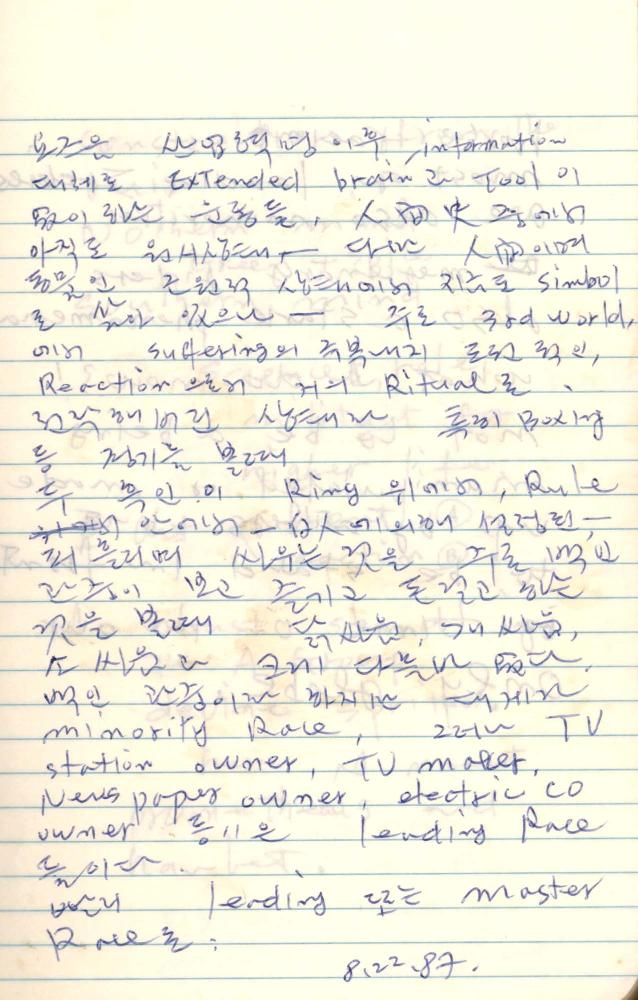 information
대체로 Extended brain과 Tool이
없이 하는 운동들, 人間史 중에서
아직도 원시상태 — 다만 人間이며
동물인 근원적 상태에서 simbol
로 살아 있으나 — 주로 3rd world,
에서 suffering의 극복내지 도전적인,
Reaction으로서 거의 Ritual로
상태가 특히 Boxing
등 경기를 볼때
두 흑인이 Ring 위에서, Rule
안에서 — 백人에 의해 설정된, —
피 흘리며 싸우는 것을 주로 백인
관중이 보고 즐기고 돈걸고 하는
것을 볼때 닭싸움, 개싸움,
소싸움과 크게 다를바 없다.
백인 관중이라 하지만 대게가
minority Race, 그러나 TV
station owner, TV maker,
News paper owner, electric co
owner 등은 leading Race
들이다.
leading 또는 master
Race로.
8.22.87.